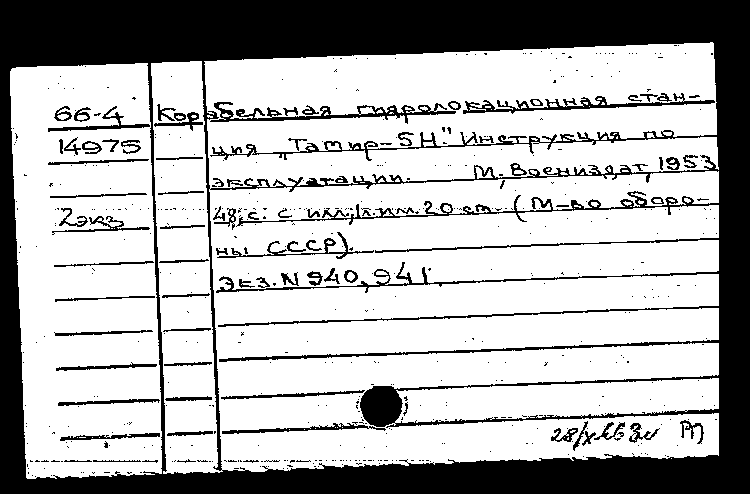 66-4 Корабельная гидролокационная стан-
14975 ция „Тамир-5Н". Инструкция по
эксплуатации. М., Воениздат, 1953
2 экз 48 с. с илл.; 1 л. илл. 20 см. (М-во оборо-
ны СССР).
Экз. N 940, 941.
28/X-66